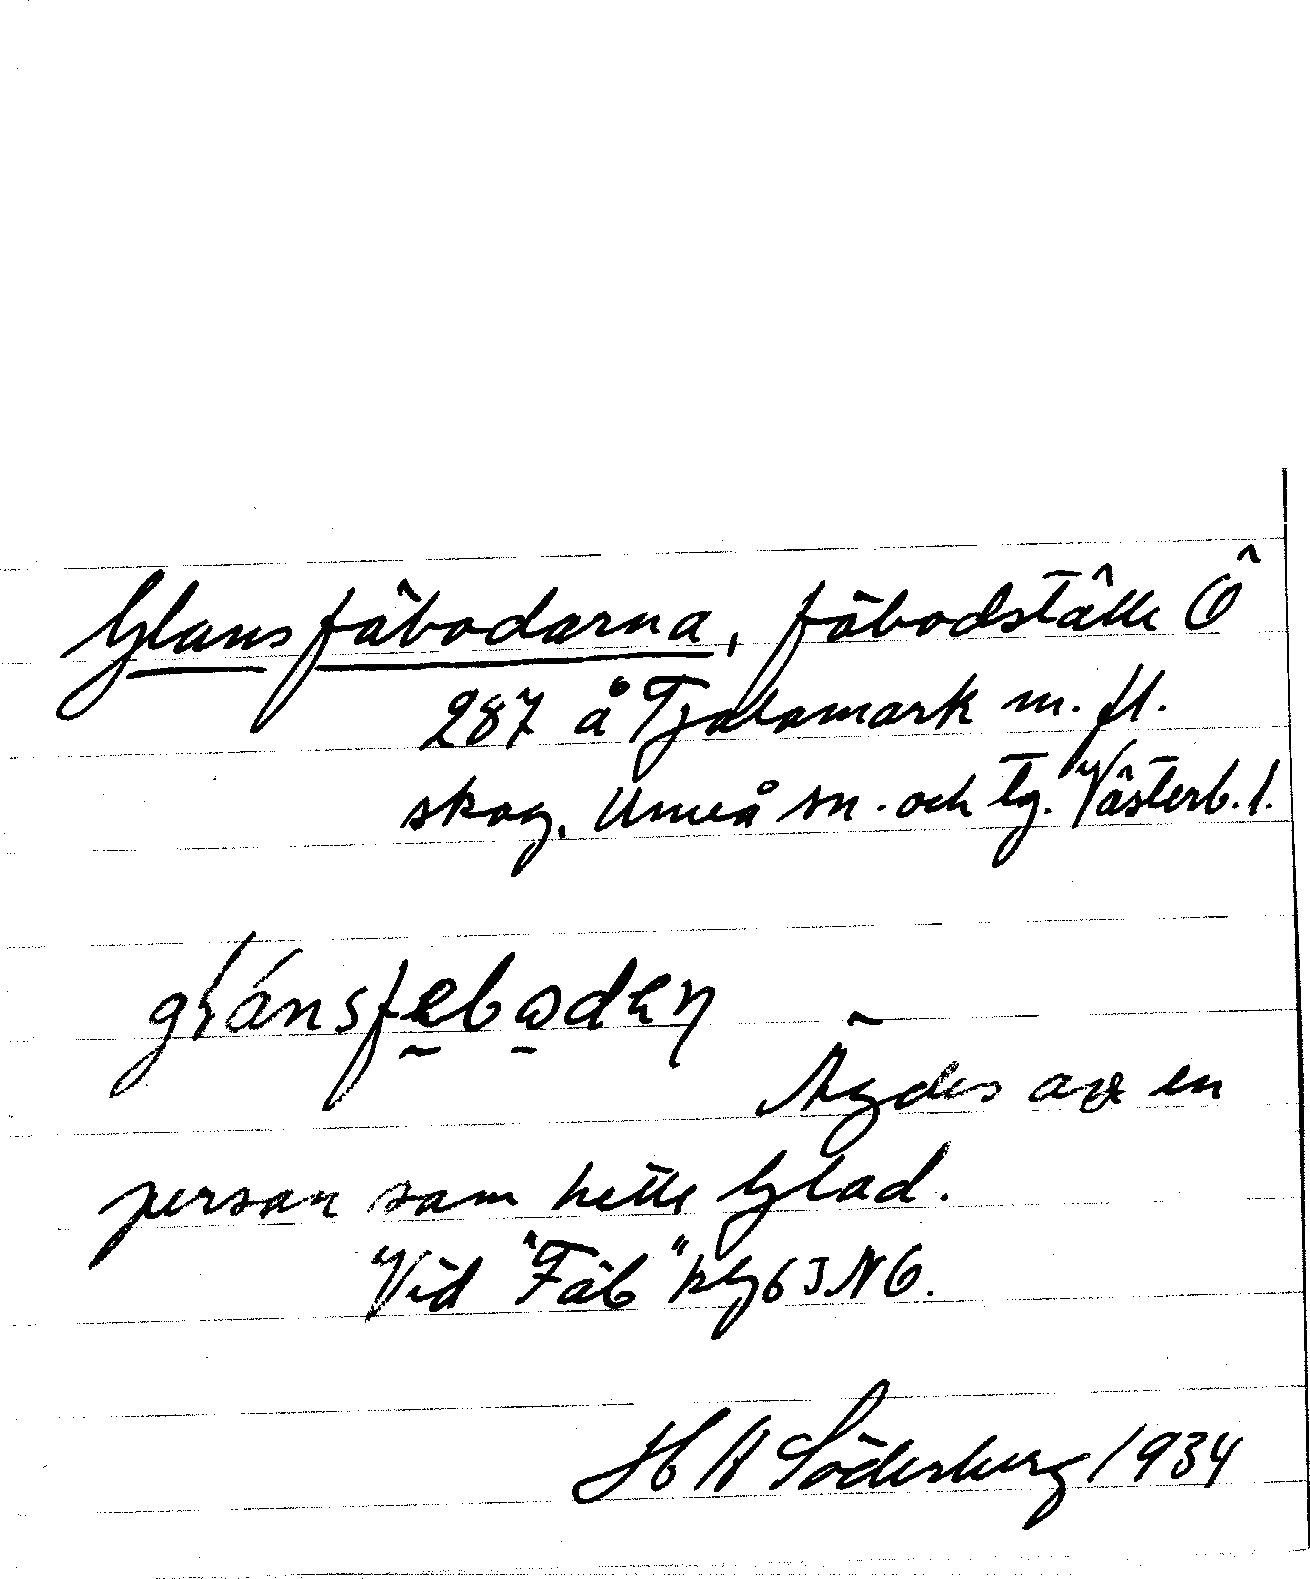 Glansfäbodarna, fäbodställe Ö
287 å Tjälamark m. fl.
skog. Umeå sn. och tg. Västerb. l.
Ägdes av en
person som hette Glad.
Vid "Fäb"
H A Söderberg 1934